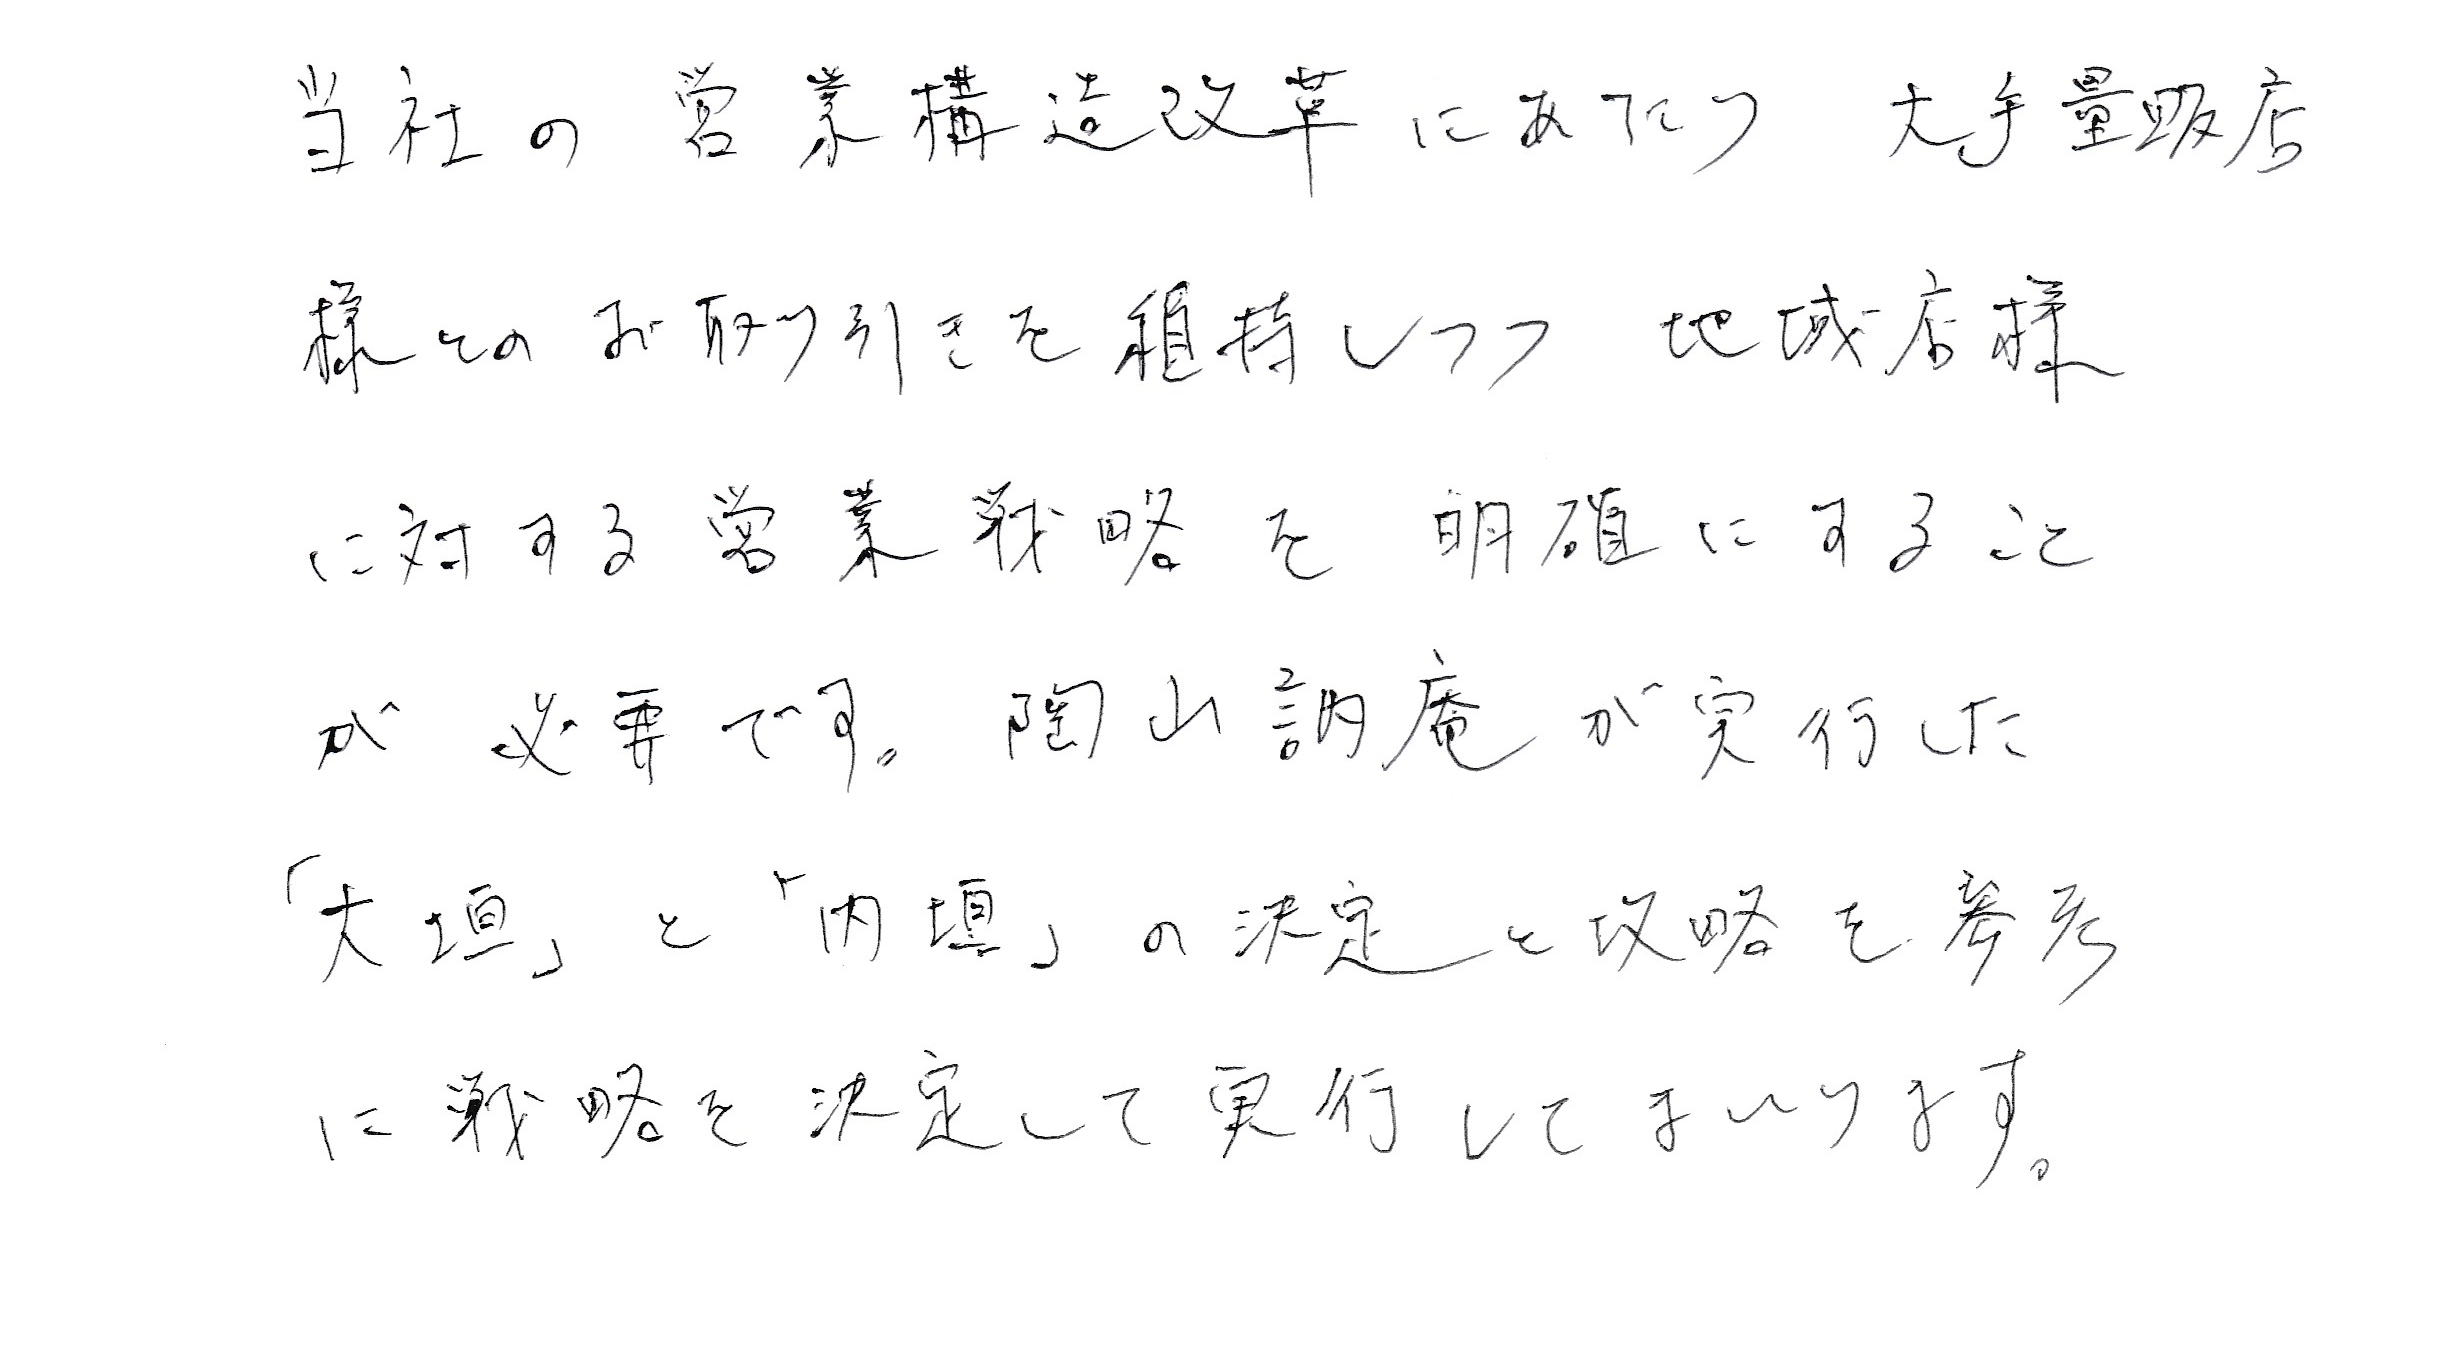 当社の営業構造改革にあたり 大手量販店
様とのお取り引きを維持しつつ 地域店様
に対する営業戦略を明確にすること
が必要です。陶山訥庵が実行した
「大垣」と「内垣」の決定と攻略を参考
に戦略を決定して実行してまいります。